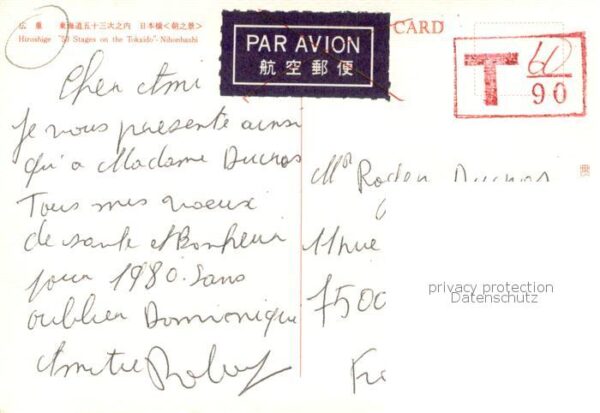 広重 東海道五十三次之内 日本橋<朝之景>
Hiroshige "53 Stages on the Tokaido"-Nihonbashi
CARD
PAR AVION
航空郵便
T 60
90
Cher Ami
Je vous présente ainsi
qu'a Madame Ducros
Tous mes voeux
de santé et Bonheur
pour 1980. Sans
oublier Dominique
Amitié
Mr Ducros
privacy protection
Datenschutz